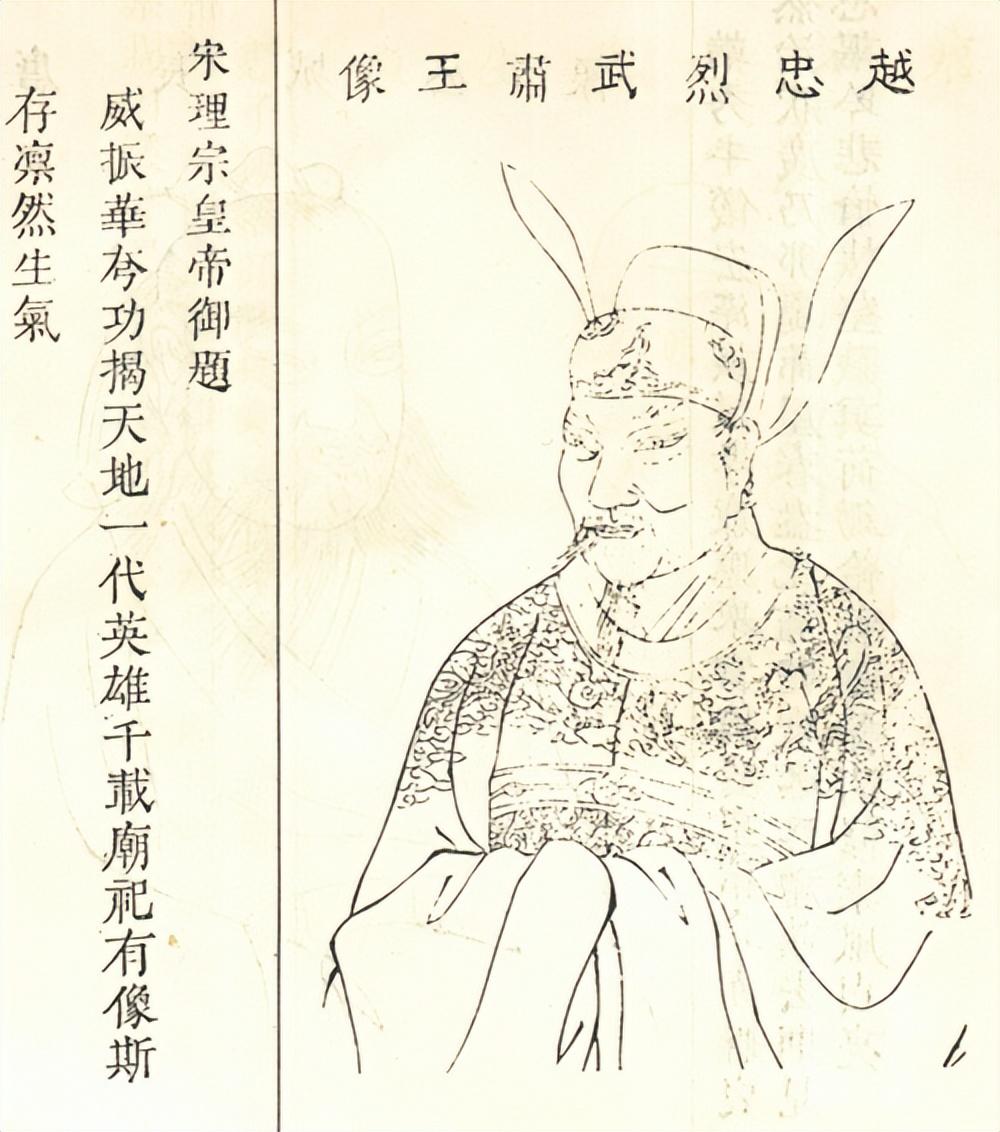 越忠烈武肅王像
宋理宗皇帝御題
威振華夷功揭天地一代英雄千載廟祀有像斯
存凛然生氣